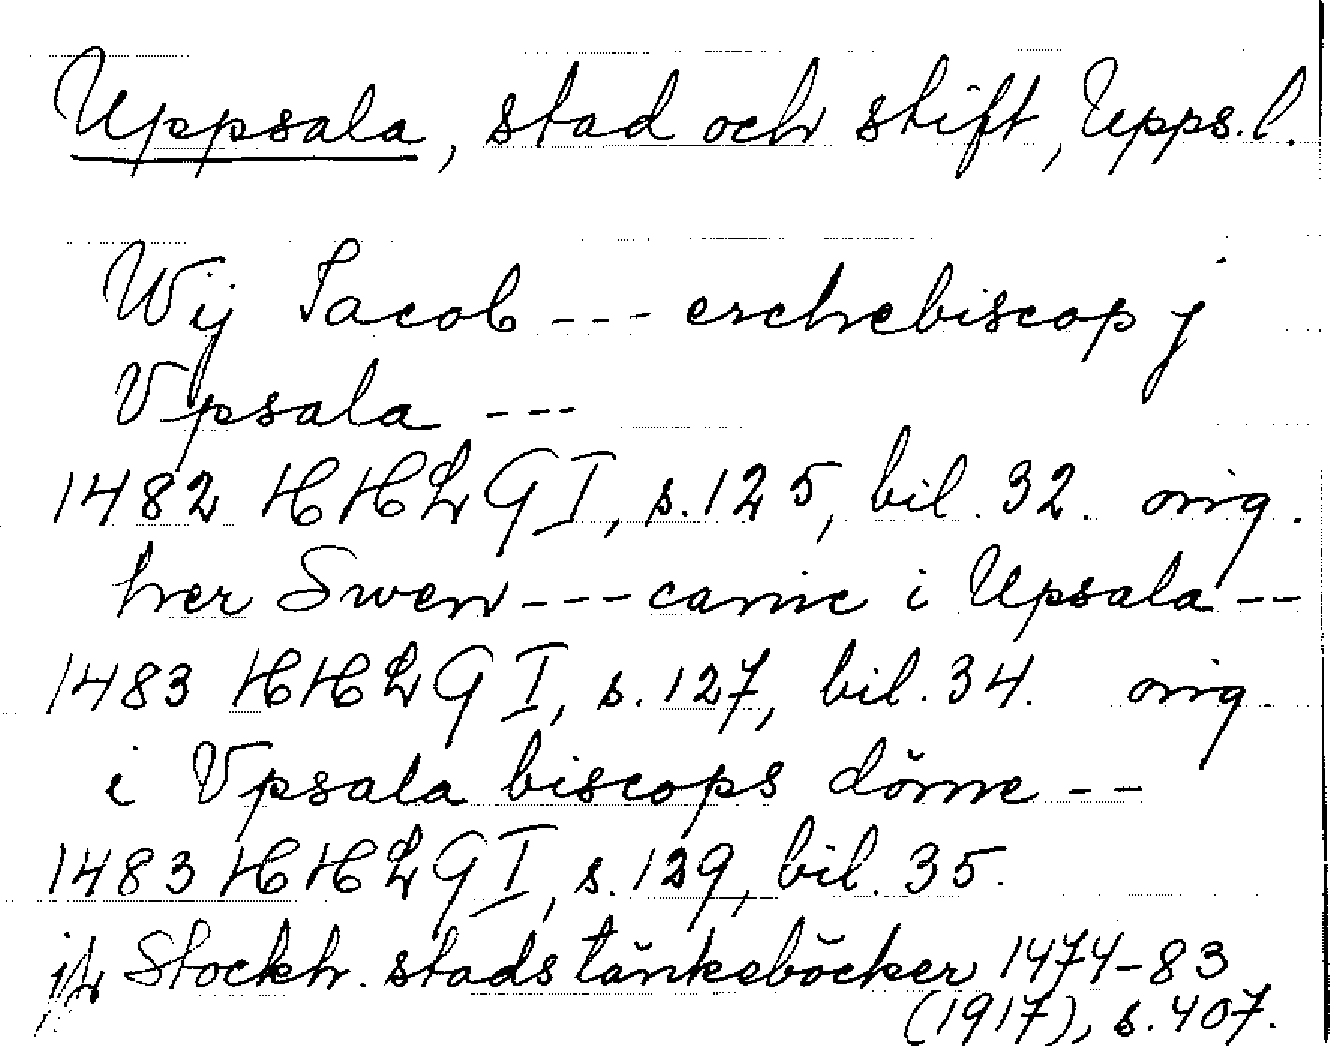 Uppsala, stad och stift, Upps. l.
Wij Jacob --- erchebiscop j
Vpsala ---
1482 HHLG I, s. 125, bil. 32. orig.
her Swen --- canic i Upsala --
1483 HHLG I, s. 127, bil. 34. orig
i Vpsala biscops döme --
1483 HHLG I, s. 129, bil. 35.
jfr Stockh. stads tänkeböcker 1474-83
(1917), s. 407.